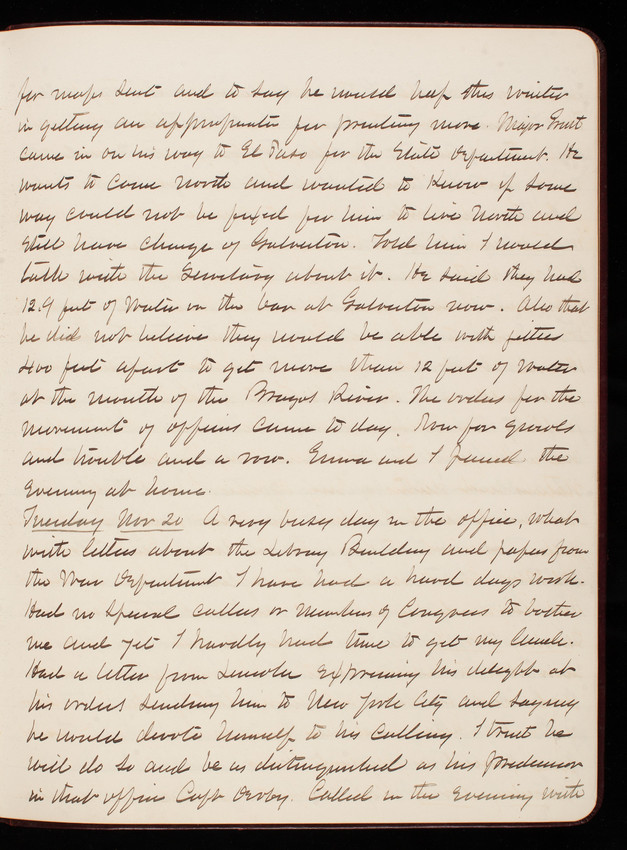 for maps sent and to say he would help this winter
in getting an appropriation for printing more. Major Ernst
came in on his way to El Paso for the State Department. He
wants to come North and wanted to know if some
way could not be fixed for him to live North and
still have charge of Galveston. Told him I would
talk with the Secretary about it. He said they had
12.9 feet of water on the bar at Galveston now. Also that
he did not believe they would be able with jetties
400 feet apart to get more than 12 feet of water
at the mouth of the Brazos River. The orders for the
movement of officers came to day. Now for growls
and trouble and a row. Emma and I passed the
evening at home.
Tuesday Nov 20 A very busy day in the office, what
with letters about the Library Building and papers from
the War Department I have had a hard days work.
Had no special callers or Members of Congress to bother
me and yet I hardly had time to get my lunch.
Had a letter from Lincoln expressing his delight at
his orders sending him to New York City and saying
he would devote himself to his calling. I trust he
will do so and be as distinguished as his predecessor
in that office Capt Derby. Called in the evening with